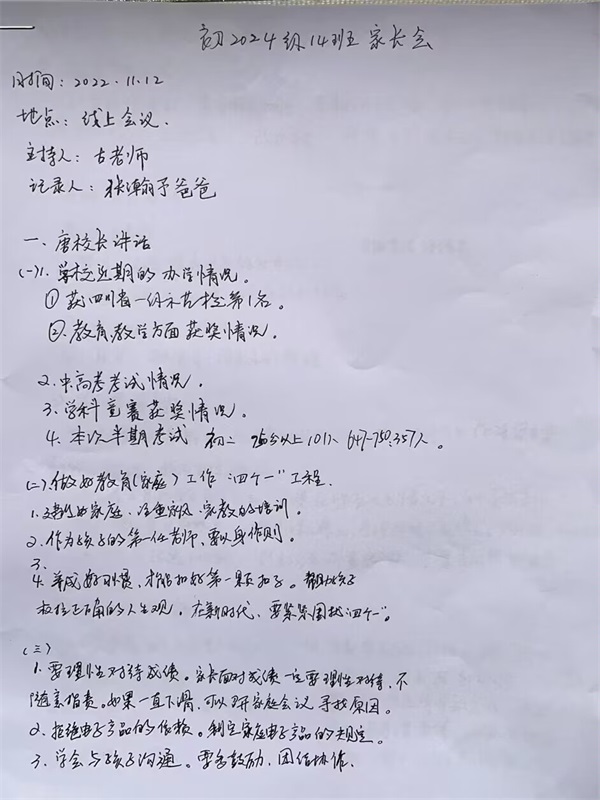 初2024级14班家长会
时间：2022.11.12
地点：线上会议.
主持人：古老师
记录人：张瀚予爸爸
一、唐校长讲话
(一)1.学校近期的办学情况。
①获四川省一级示范校第1名。
②.教育、教学方面获奖情况。
2.中高考考试情况。
3.学科竞赛获奖情况。
4.本次半期考试 初二 750分以上101人、647-750:357人。
(二).做好教育(家庭)工作"四个一"工程.
1.建好家庭、注重家风、家教的培训。
2.作为孩子的第一任老师、要以身作则。
3.
4.养成好习惯、才能扣好第一颗扣子。帮助孩子
树立正确的人生观，在新时代、要紧紧围扰"四个一"。
(三)
1.要理性对待成绩。家长面对成绩一定要理性对待、不
随意指责。如果一直下滑、可以召开家庭会议、寻找原因。
2.拒绝电子产品的依赖。制定家庭电子产品的规定。
3.学会与孩子沟通。要多鼓励、团结协作.